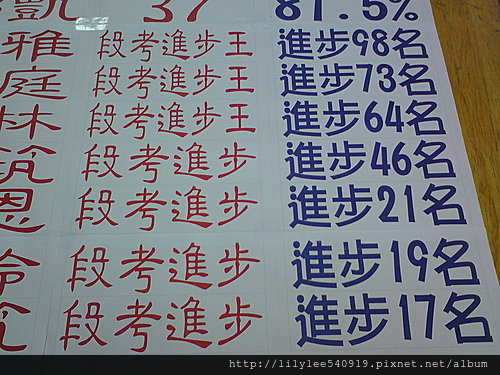 凱 37 81.5%
雅 段考進步王 進步98名
庭 段考進步王 進步73名
林 段考進步王 進步64名
筑 段考進步 進步46名
恩 段考進步 進步21名
段考進步 進步19名
段考進步 進步17名
http://lilylee540919.pixnet.net/album